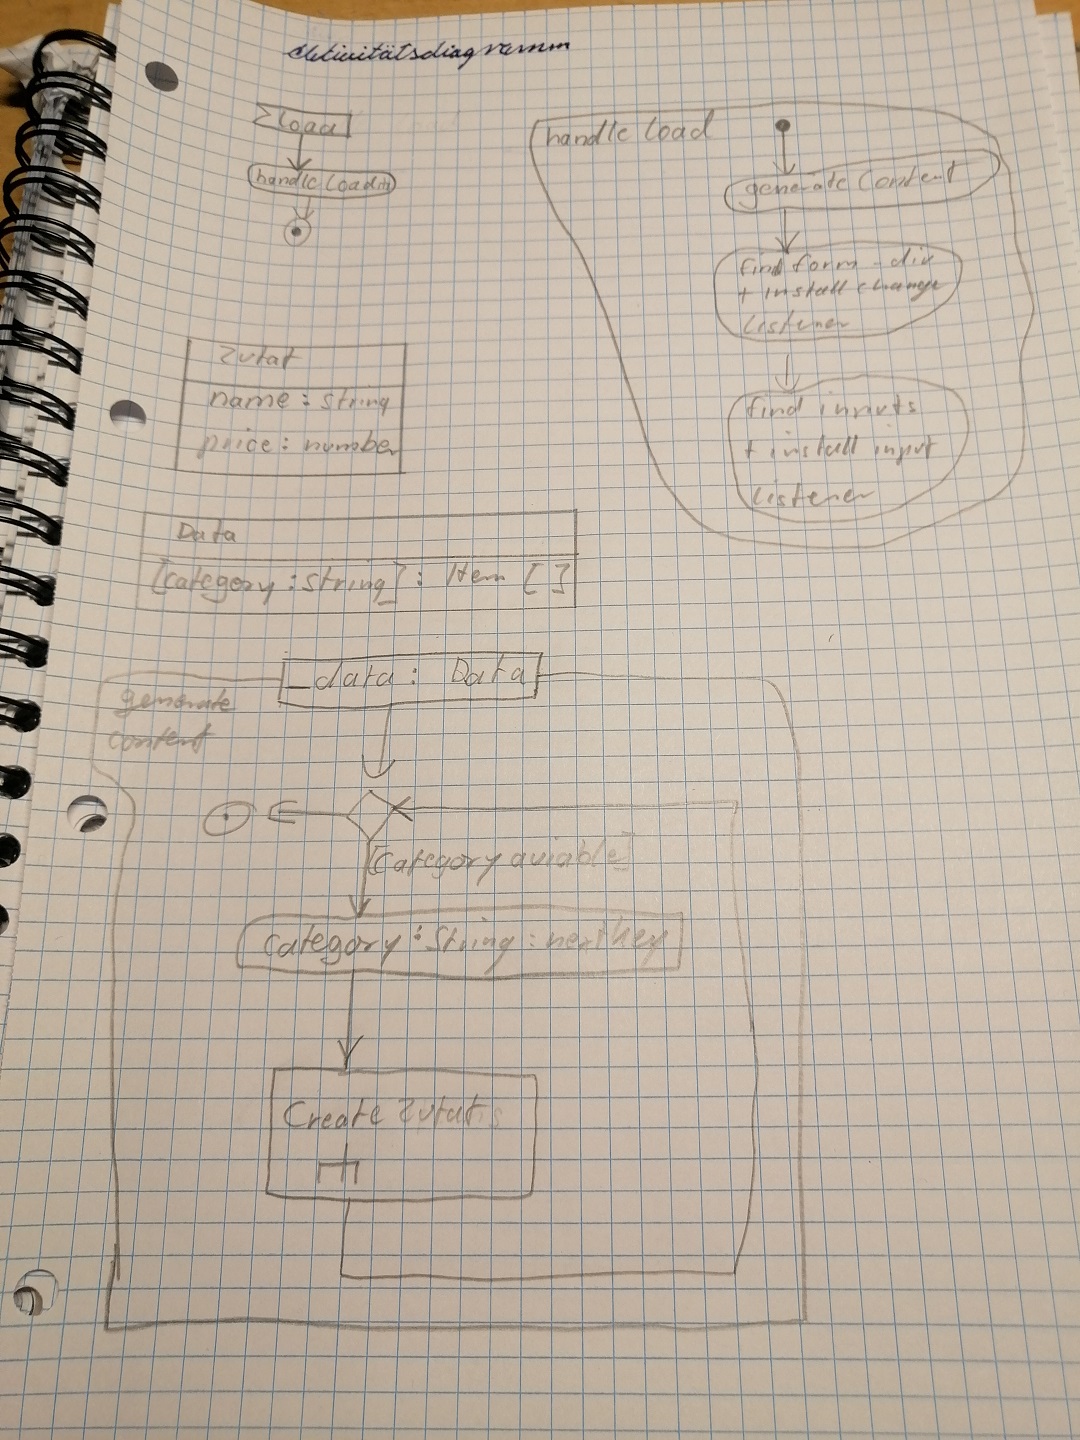 Aktivitätsdiagramm
Load
handle Load
handle Load
generate Content
find form-div
+ install change
Listener
find inputs
+ install input
Listener
Zutat
name : string
price : number
Data
[category : string] : Item [ ]
_data : Data
generate
content
[Category aviable]
Category : String : nextKey
Create Zutat